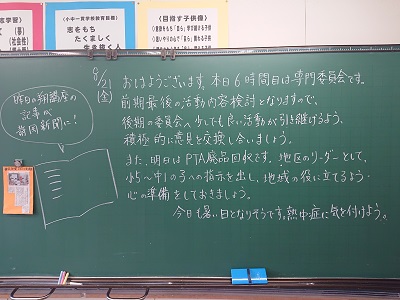 学習）
（夢）
（社会性）
《小中一貫学校教育目標》
志をもち
たくましく
生き抜く人
《めざす子供像》
9/21
(金)
おはようございます。本日6時間目は専門委員会です。
前期最後の活動内容検討となりますので、
後期の委員会へ少しでも良い活動が引き継げるよう、
積極的に意見を交換し合いましょう。
また、明日はPTA廃品回収です。地区のリーダーとして、
小5～中1の子への指示を出し、地域の役に立てるよう
心の準備をしておきましょう。
今日も暑い日となりそうです。熱中症に気を付けよう。
昨日の
記事が
静岡新聞に!